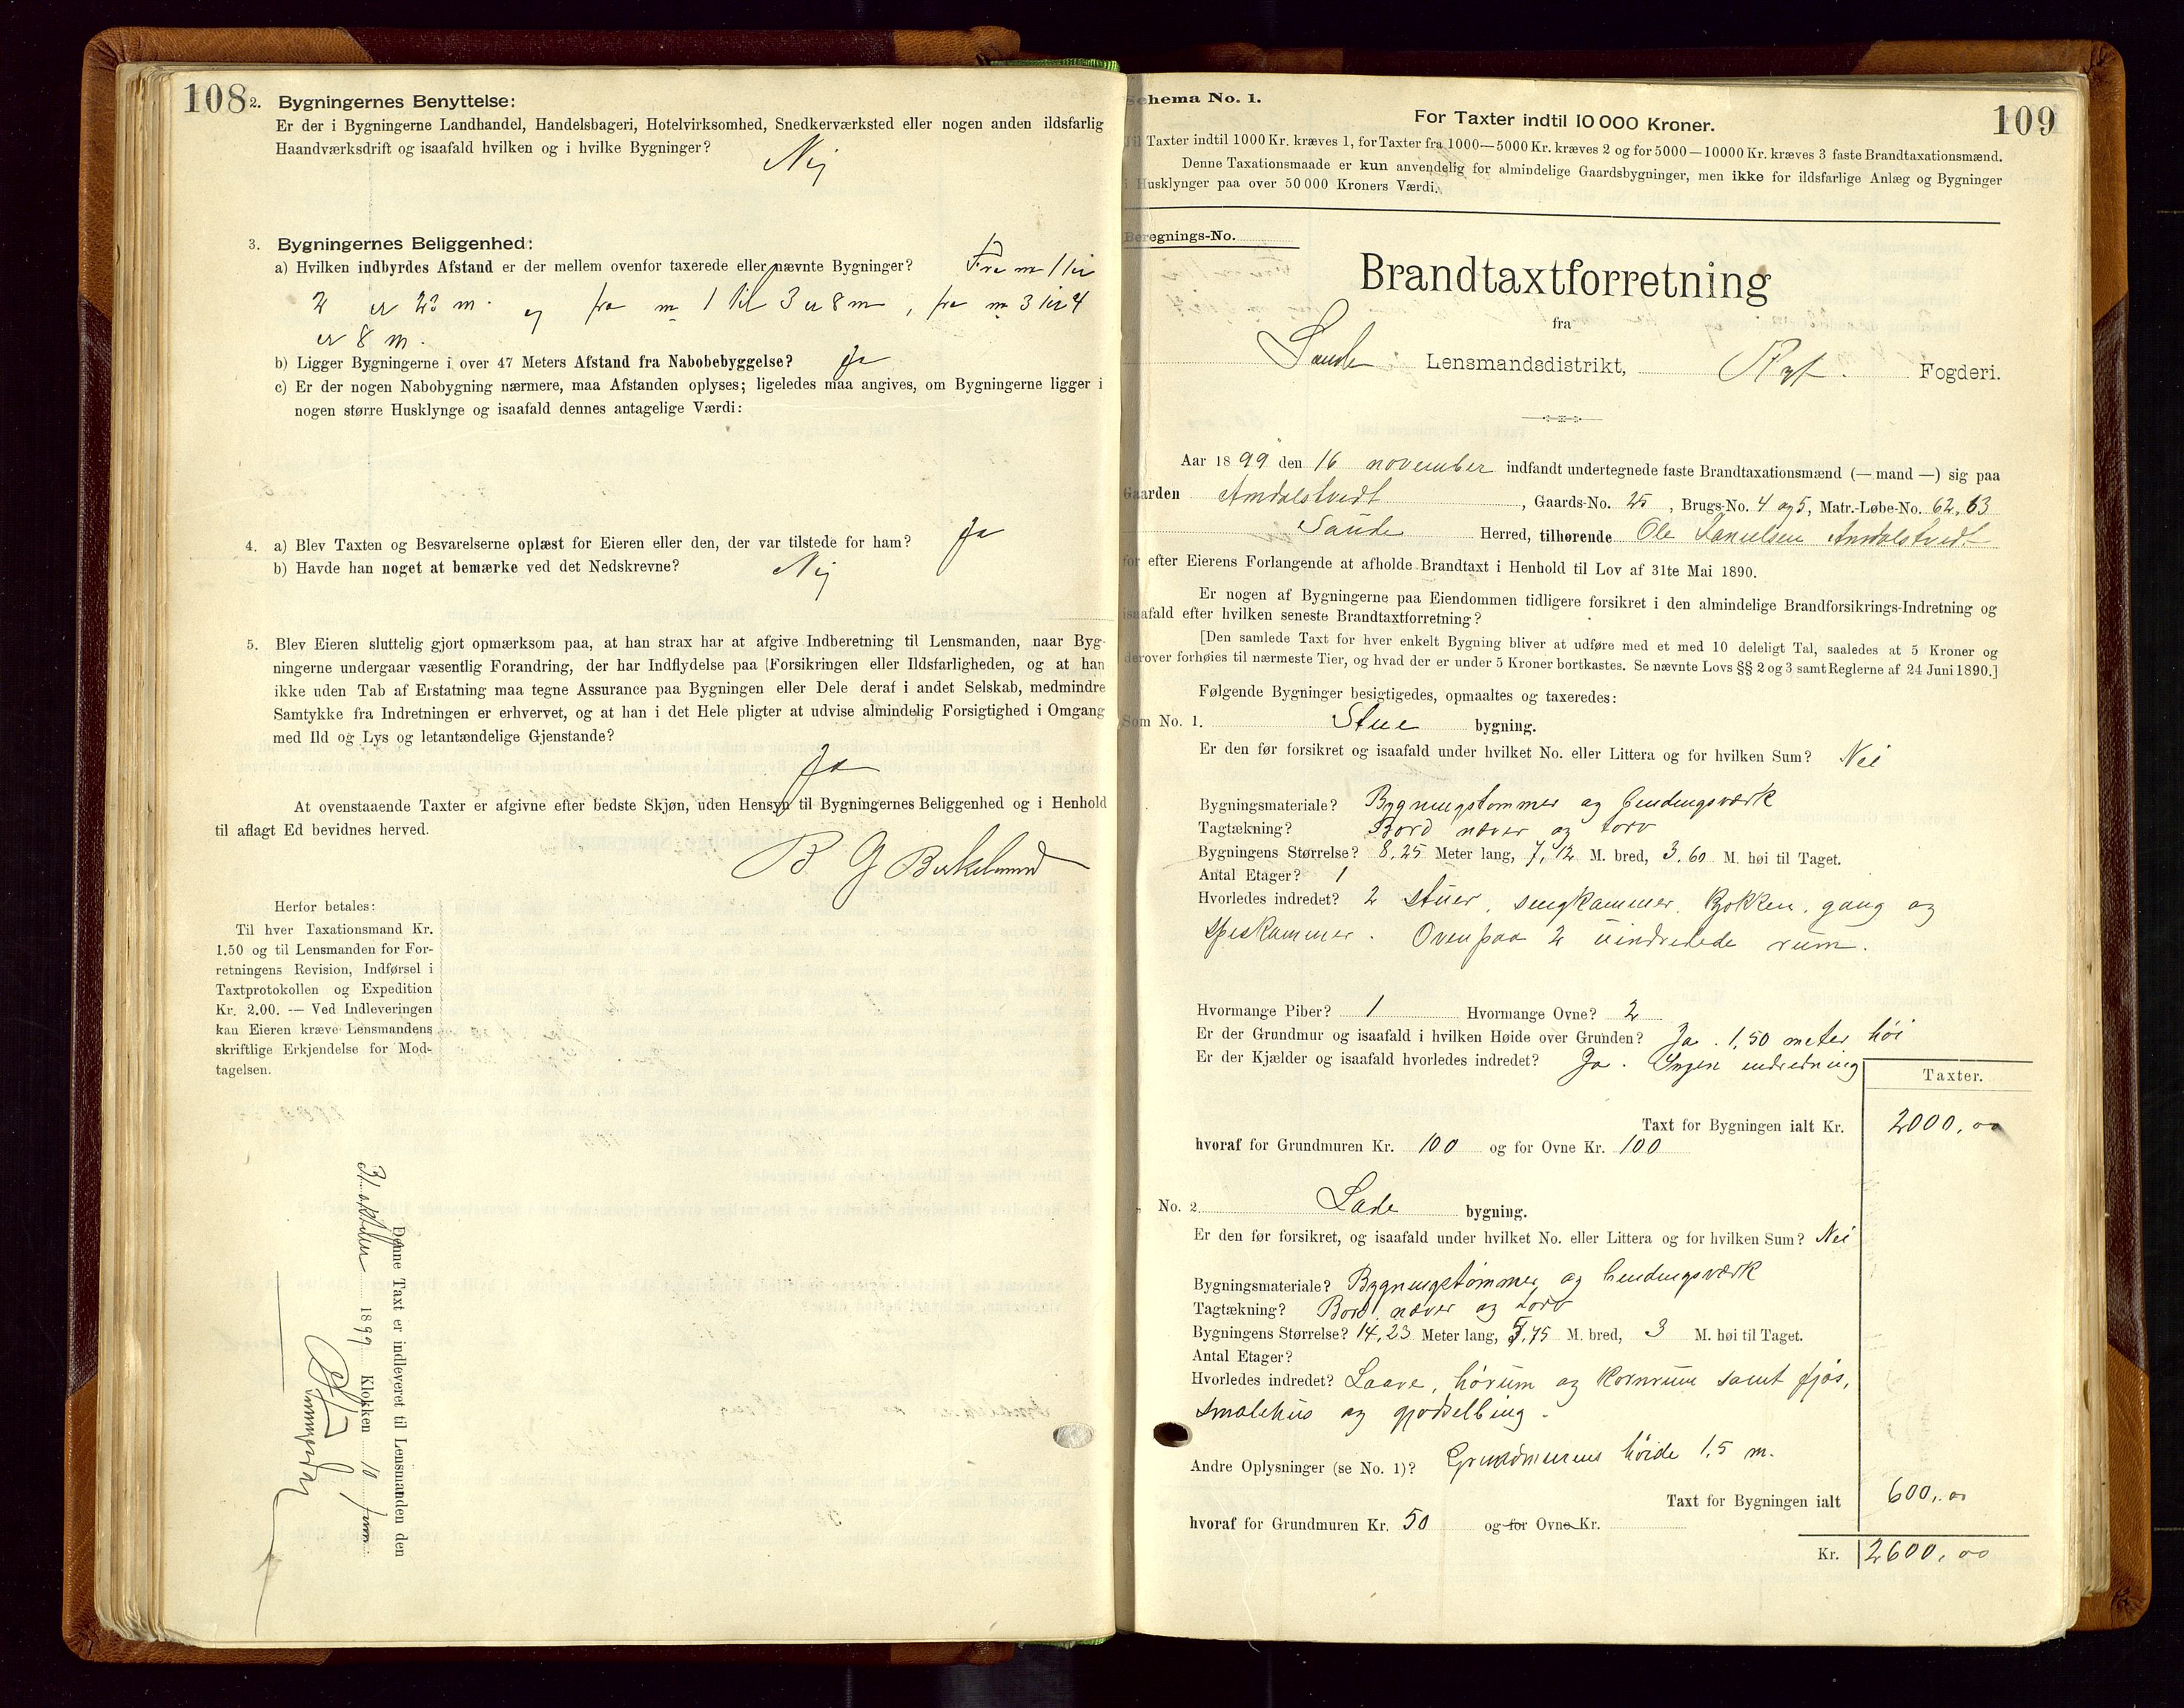 108
2. Bygningernes Benyttelse:
Er der i Bygningerne Landhandel, Handelsbageri, Hotelvirksomhed, Snedkerværksted eller nogen anden ildsfarlig
Haandværksdrift og isaafald hvilken og i hvilke Bygninger? Nej
3. Bygningernes Beliggenhed:
a) Hvilken indbyrdes Afstand er der mellem ovenfor taxerede eller nævnte Bygninger? Fra no 1 til
2 er 23 m. og fra no 1 til 3 er 8 m, fra no 3 til 4
er 8 m.
b) Ligger Bygningerne i over 47 Meters Afstand fra Nabobebyggelse? Ja
c) Er der nogen Nabobygning nærmere, maa Afstanden oplyses; ligeledes maa angives, om Bygningerne ligger i
nogen større Husklynge og isaafald dennes antagelige Værdi:
4. a) Blev Taxten og Besvarelserne oplæst for Eieren eller den, der var tilstede for ham? Ja
b) Havde han noget at bemærke ved det Nedskrevne? Nej
5. Blev Eieren sluttelig gjort opmærksom paa, at han strax har at afgive Indberetning til Lensmanden, naar Byg-
ningerne undergaar væsentlig Forandring, der har Indflydelse paa Forsikringen eller Ildsfarligheden, og at han
ikke uden Tab af Erstatning maa tegne Assurance paa Bygningen eller Dele deraf i andet Selskab, medmindre
Samtykke fra Indretningen er erhvervet, og at han i det Hele pligter at udvise almindelig Forsigtighed i Omgang
med Ild og Lys og letantændelige Gjenstande?
Ja
At ovenstaaende Taxter er afgivne efter bedste Skjøn, uden Hensyn til Bygningernes Beliggenhed og i Henhold
til aflagt Ed bevidnes herved.
B G Birkelund
Herfor betales:
Til hver Taxationsmand Kr.
1.50 og til Lensmanden for For-
retningens Revision, Indførsel i
Taxtprotokollen og Expedition
Kr. 2.00. — Ved Indleveringen
kan Eieren kræve Lensmandens
skriftlige Erkjendelse for Mod-
tagelsen.
Denne Taxt er indleveret til Lensmanden den
31 oktober 1899 Klokken 10 fm.
109
Schema No. 1.
For Taxter indtil 10 000 Kroner.
Til Taxter indtil 1000 Kr. kræves 1, for Taxter fra 1000—5000 Kr. kræves 2 og for 5000—10000 Kr. kræves 3 faste Brandtaxationsmænd.
Denne Taxationsmaade er kun anvendelig for almindelige Gaardsbygninger, men ikke for ildsfarlige Anlæg og Bygninger
i Husklynger paa over 50 000 Kroners Værdi.
Beregnings-No.
Brandtaxtforretning
fra
Saude Lensmandsdistrikt, Ryf. Fogderi.
Aar 1899 den 16 november indfandt undertegnede faste Brandtaxationsmænd (— mand —) sig paa
Gaarden Amdalstvedt, Gaards-No. 25, Brugs-No. 4 og 5, Matr.-Løbe-No. 62, 63
Saude Herred, tilhørende Ole Danielsen Amdalstvedt
for efter Eierens Forlangende at afholde Brandtaxt i Henhold til Lov af 31te Mai 1890.
Er nogen af Bygningerne paa Eiendommen tidligere forsikret i den almindelige Brandforsikrings-Indretning og
isaafald efter hvilken seneste Brandtaxtforretning?
[Den samlede Taxt for hver enkelt Bygning bliver at udføre med et med 10 deleligt Tal, saaledes at 5 Kroner og
derover forhøies til nærmeste Tier, og hvad der er under 5 Kroner bortkastes. Se nævnte Lovs §§ 2 og 3 samt Reglerne af 24 Juni 1890.]
Følgende Bygninger besigtigedes, opmaaltes og taxeredes:
Som No. 1. Stue bygning.
Er den før forsikret og isaafald under hvilket No. eller Littera og for hvilken Sum? Nei
Bygningsmateriale? Bygningstømmer og bindingsværk
Tagtækning? Bord næver og torv
Bygningens Størrelse? 8,25 Meter lang, 7,12 M. bred, 3.60 M. høi til Taget.
Antal Etager? 1
Hvorledes indredet? 2 stuer, sengkammer, kjøkken, gang og
speskammer. Ovenpaa 2 uindredede rum.
Hvormange Piber? 1 Hvormange Ovne? 2
Er der Grundmur og isaafald i hvilken Høide over Grunden? Ja. 1,50 meter høi
Er der Kjælder og isaafald hvorledes indredet? Ja. Ingen indredning
Taxter.
Taxt for Bygningen ialt Kr. 2000,00
hvoraf for Grundmuren Kr. 100 og for Ovne Kr. 100
" No. 2. Lade bygning.
Er den før forsikret, og isaafald under hvilket No. eller Littera og for hvilken Sum? Nei
Bygningsmateriale? Bygningstømmer og bindingsværk
Tagtækning? Bord næver og torv
Bygningens Størrelse? 14,23 Meter lang, 5,75 M. bred, 3 M. høi til Taget.
Antal Etager?
Hvorledes indredet? Laave, hørum og kornrum samt fjøs,
smalehus og gjødselbing.
Andre Oplysninger (se No. 1)? Grundmurens høide 1,5 m.
Taxt for Bygningen ialt 600,00
hvoraf for Grundmuren Kr. 50 og for Ovne Kr.
Kr. 2600,00